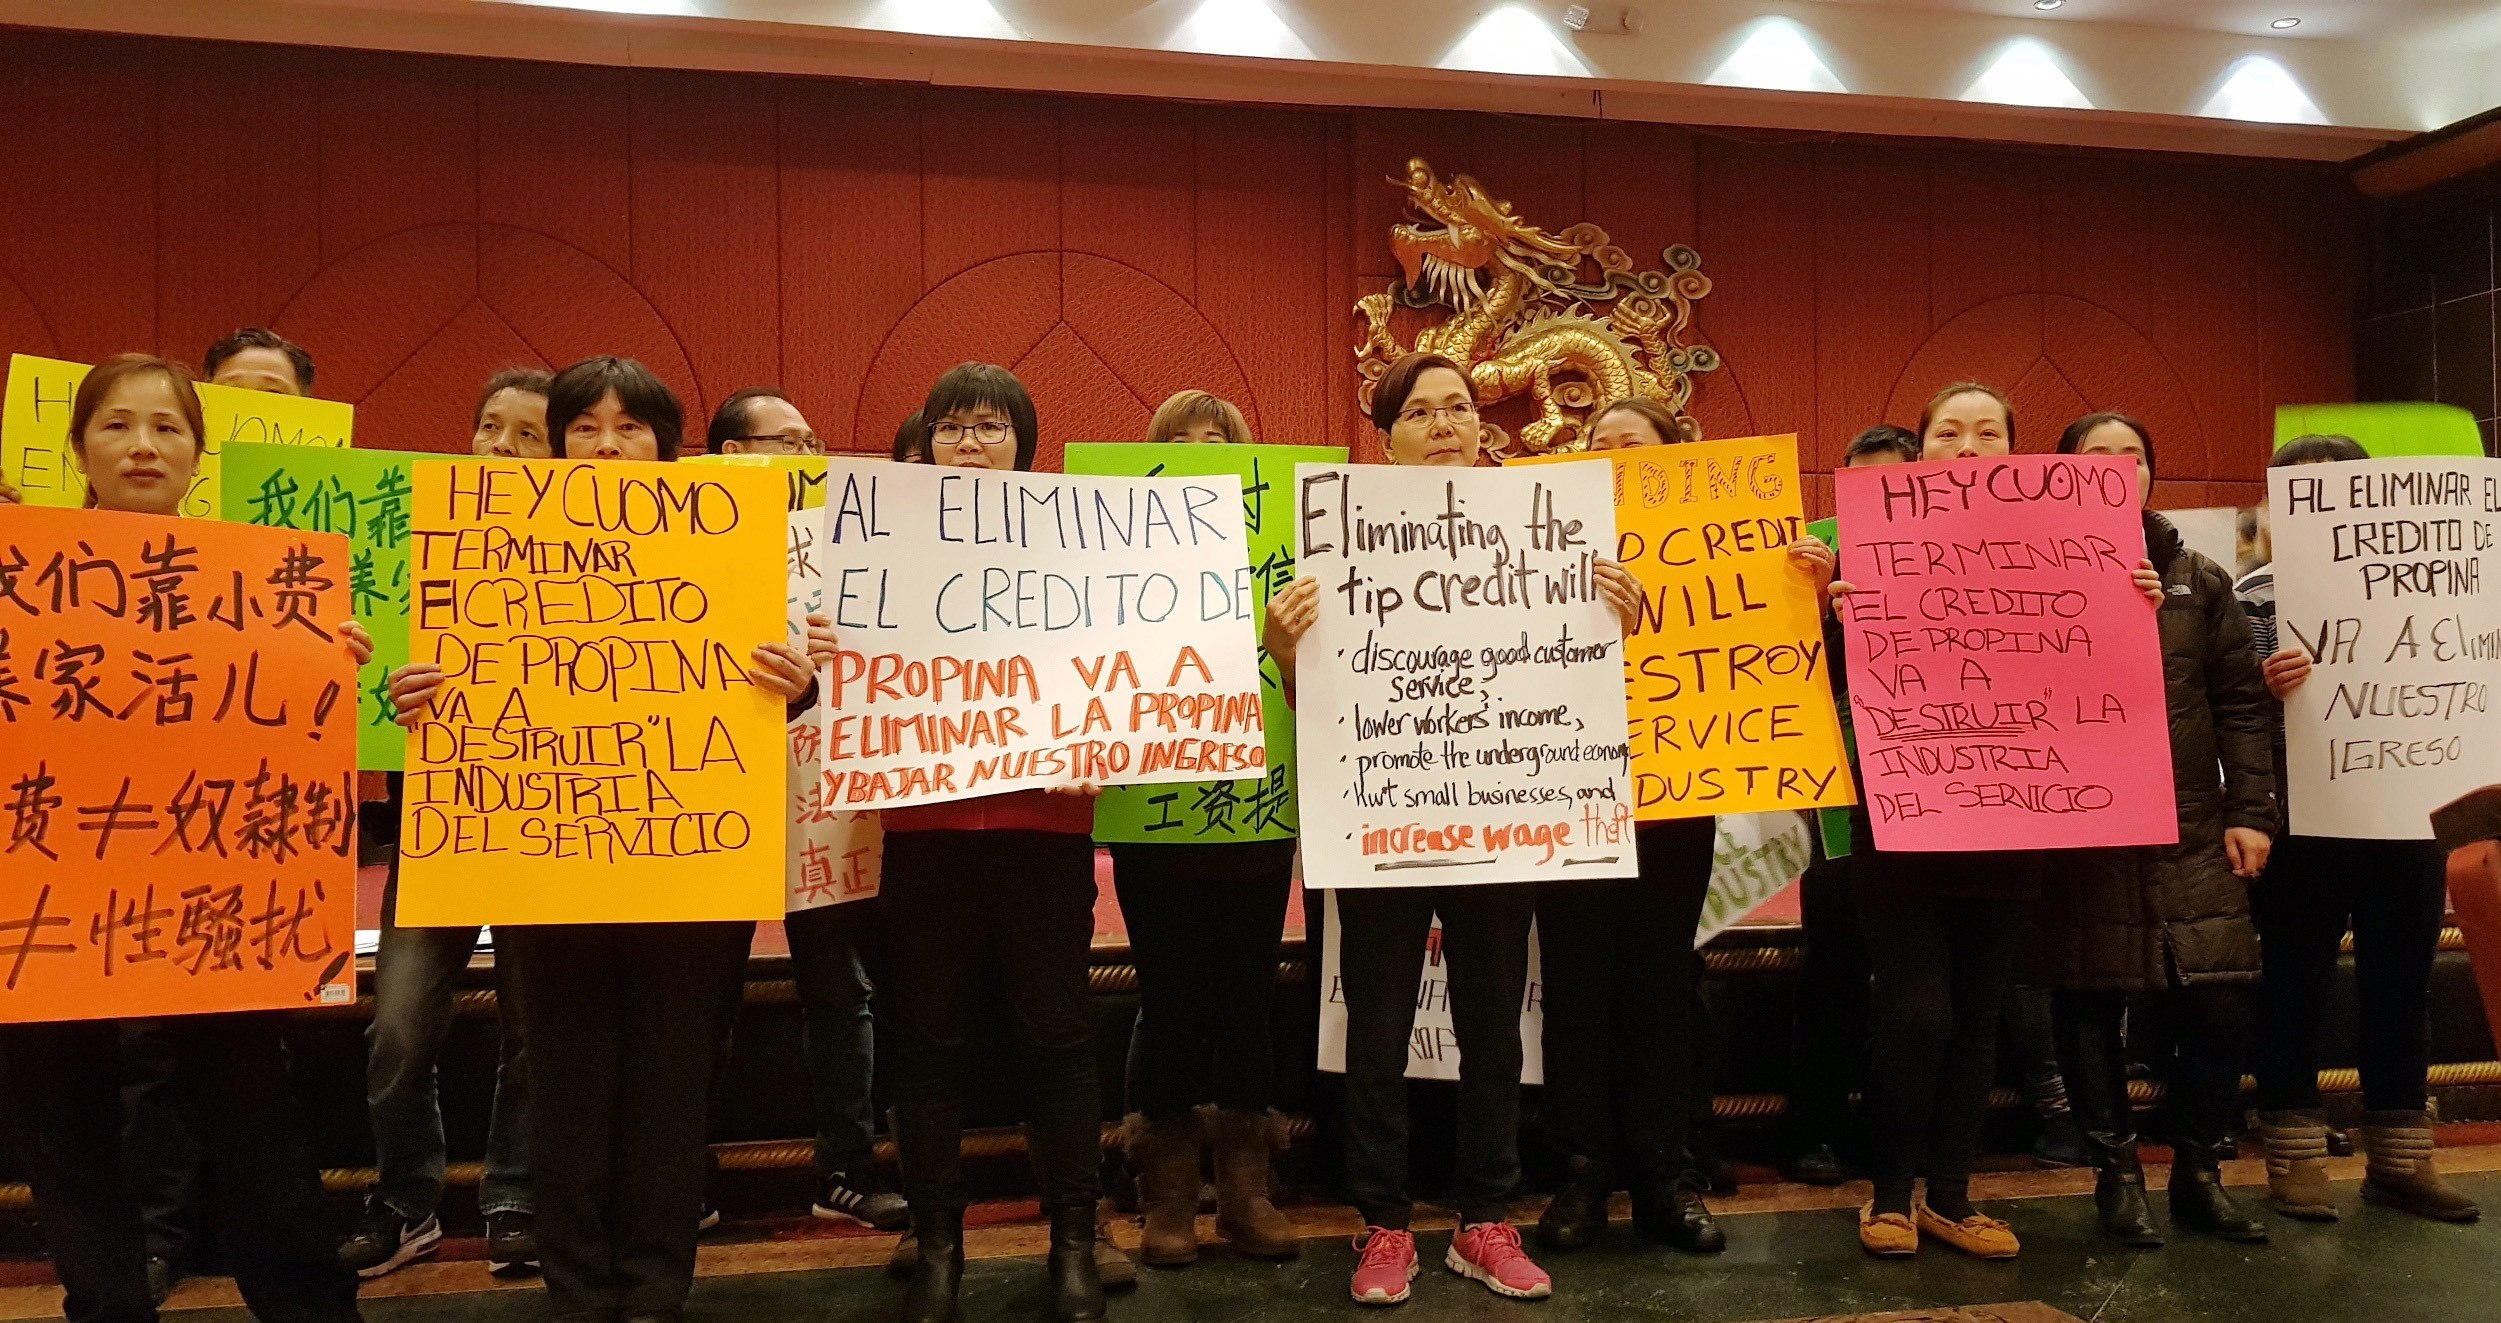 我们靠小费
养家活儿!
费≠奴隶制
≠性骚扰!
我们靠
养家
HEY CUOMO
TERMINAR
El CREDITO
DE PROPINA
VA A
"DESTRUIR" LA
INDUSTRIA
DEL SERVICIO
AL ELIMINAR
EL CREDITO DE
PROPINA VA A
ELIMINAR LA PROPINA
Y BAJAR NUESTRO INGRESO
真正
工资提
Eliminating the
tip credit will
• discourage good customer
service,
• lower workers' income,
• promote the underground economy
• Hurt small businesses, and
• increase wage theft
CREDIT
WILL
SERVICE
HEY CUOMO
TERMINAR
EL CREDITO
DE PROPINA
VA A
"DESTRUIR" LA
INDUSTRIA
DEL SERVICIO
AL ELIMINAR EL
CREDITO DE
PROPINA
VA A ElIMIN
NUESTRO
IGRESO
INDUSTRY